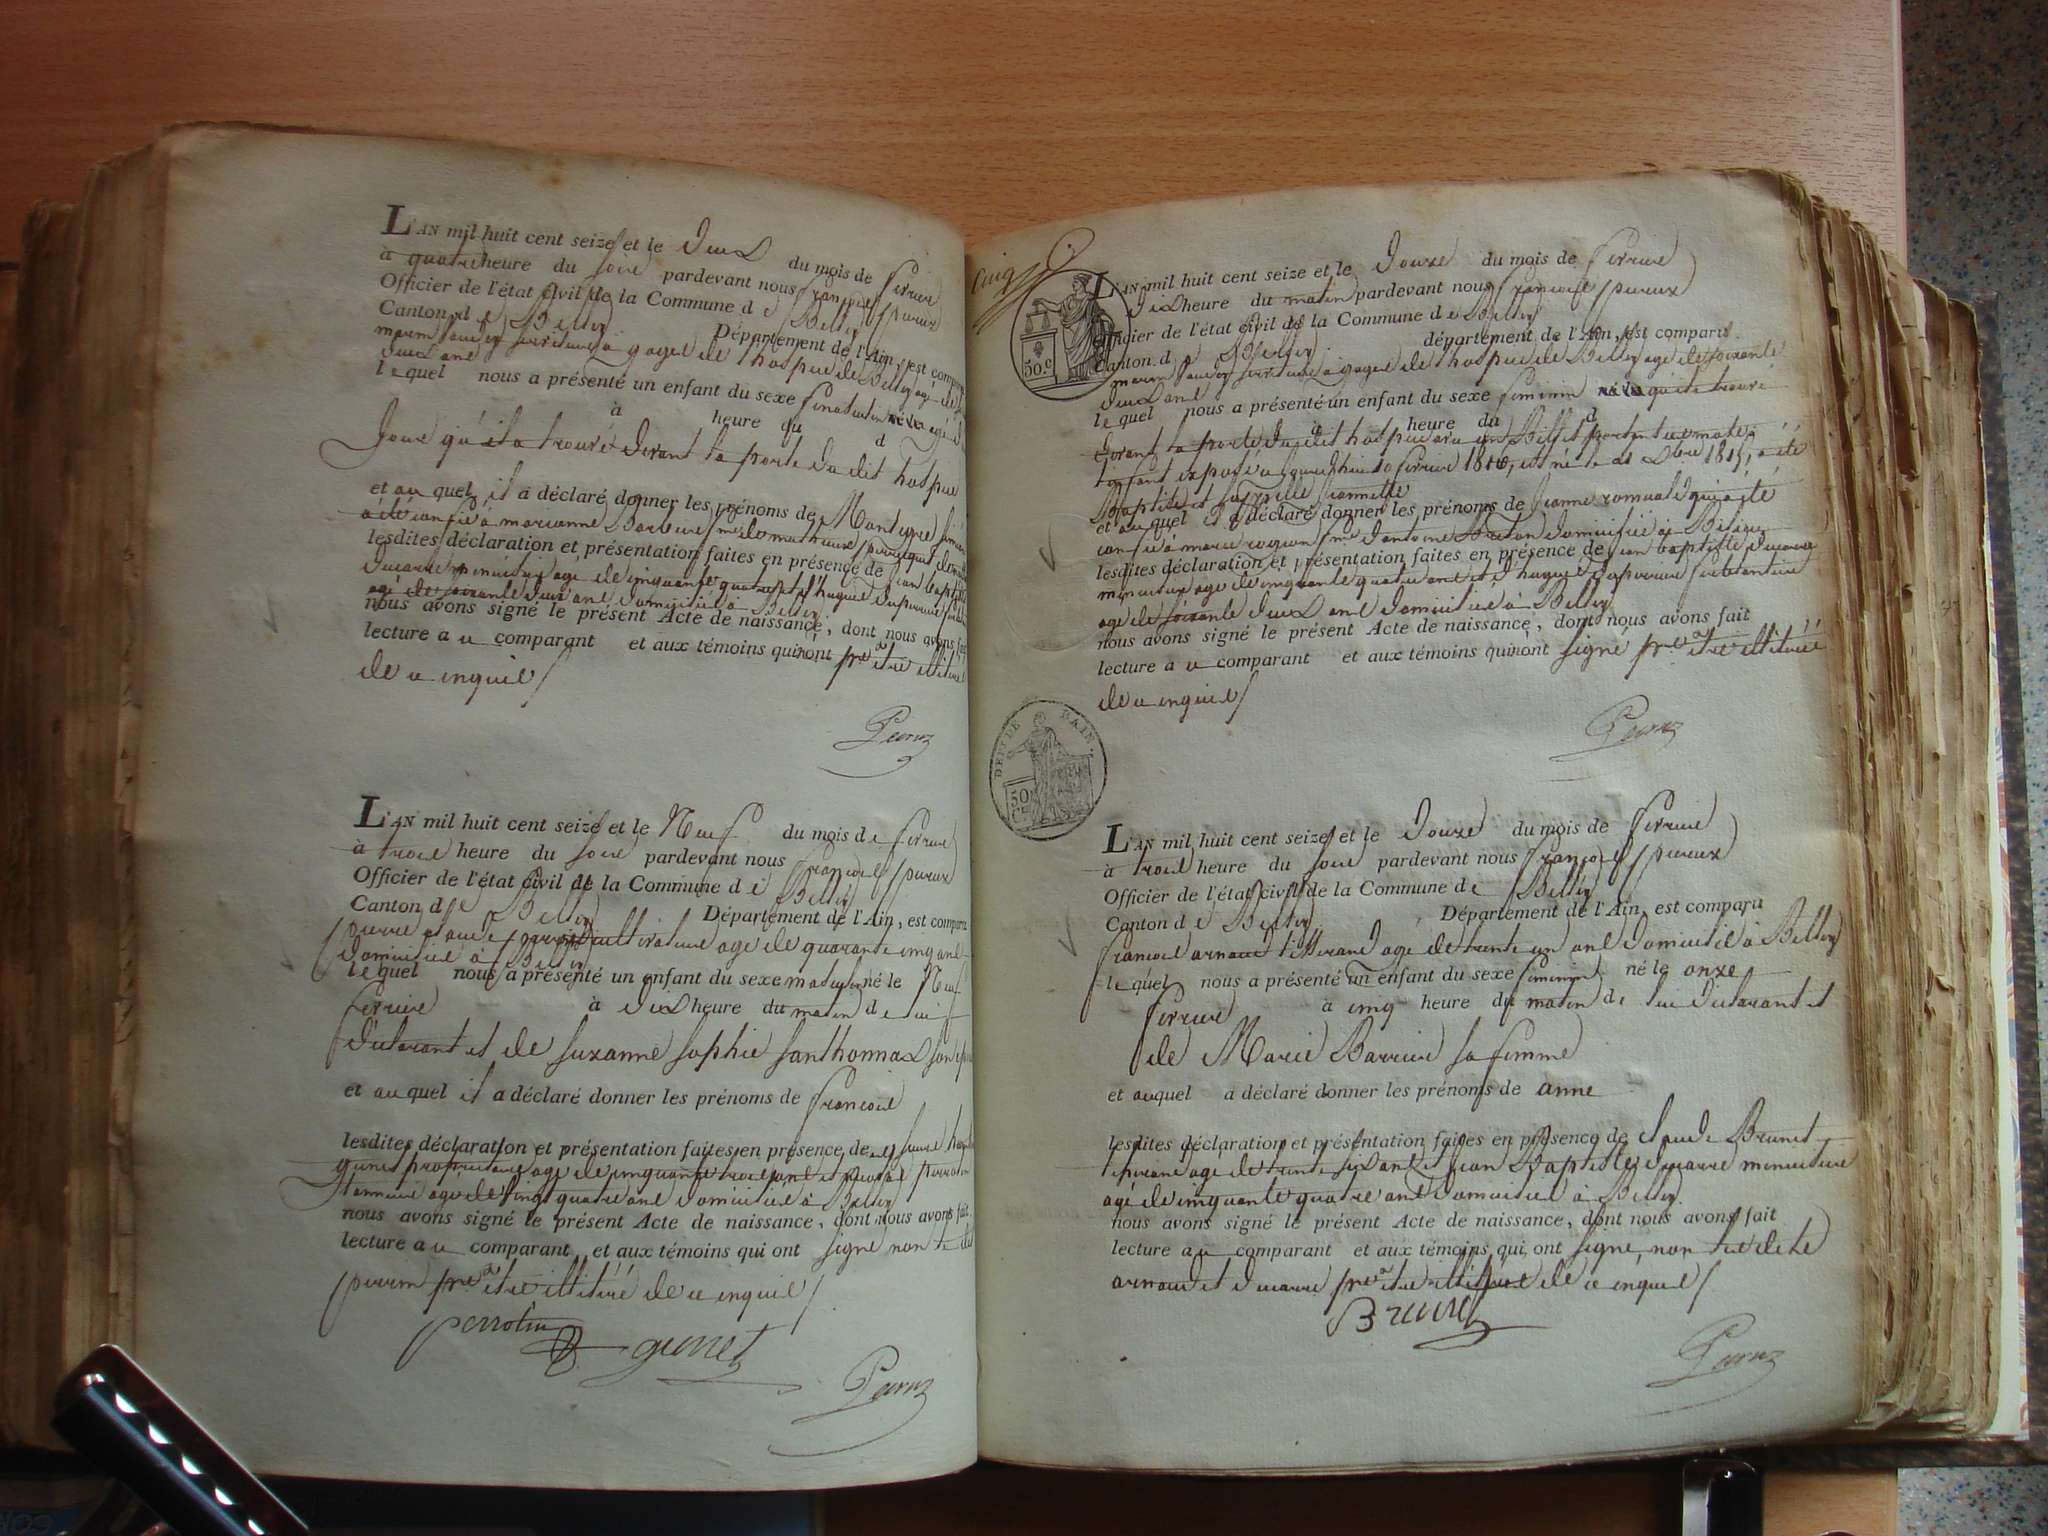 L'AN mil huit cent seize et le deux du mois de fevrier
à quatre heure du soir pardevant nous françois peroux
Officier de l'état civil de la Commune de Belley
Canton de Belley Département de l'Ain, est comparu
à gages de l'hospice de Belley agé de
deux ans
lequel nous a présenté un enfant du sexe né le agé d
à heure du d
jour qu'il a trouvé devant la porte du dit hospice
et auquel il a déclaré donner les prénoms de
a été confié à marianne
lesdites déclaration et présentation faites en présence de jean baptiste
ducarre menuisier agé de cinquante quatre ans et d'hugue
agé de soixante deux ans domicilié à Belley
nous avons signé le présent Acte de naissance, dont nous avons fait
lecture au comparant et aux témoins qui n'ont pre a être illitéré
de ce enquis
L'AN mil huit cent seize et le Neuf du mois de fevrier
à trois heure du soir pardevant nous françois peroux
Officier de l'état civil de la Commune de Belley
Canton de Belley Département de l'Ain, est comparu
pierre claude cultivateur agé de quarante cinq ans
domicilié à Belley
lequel nous a présenté un enfant du sexe masculin né le Neuf
fevrier à dix heure du matin de lui
déclarant et de suzanne sophie santhonnax son
et auquel il a déclaré donner les prénoms de françois
lesdites déclaration et présentation faites en présence de
gunet propriétaire agé de cinquante trois ans et
agé de vingt quatre ans domiciliés à Belley
nous avons signé le présent Acte de naissance, dont nous avons fait
lecture au comparant et aux témoins qui ont signé non le dit
pre a être illitéré de ce enquis
perrotin gunet
Peroux
cinq
30.c
L'AN mil huit cent seize et le douze du mois de fevrier
dix heure du matin pardevant nous françois peroux
Officier de l'état civil de la Commune de Belley
Canton de Belley département de l'Ain, est comparu
à gages de l'hospice de Belley agé de soixante
deux ans
lequel nous a présenté un enfant du sexe feminin né le qu'il a trouvé
à heure du d
devant la porte du dit hospice avec un Billet portant ces mots:
enfant exposé aujourd'hui 10 fevrier 1816, est né le 21 Xbre 1815, a été
Baptisé et s'appelle jeannette
et auquel il a déclaré donner les prénoms de jeanne romuald qui a été
confié à marie fme d'antoine domicilié à
lesdites déclaration et présentation faites en présence de jean baptiste ducarre
menuisier agé de cinquante quatre ans et d'hugue
agé de soixante deux ans domicilié à Belley
nous avons signé le présent Acte de naissance, dont nous avons fait
lecture au comparant et aux témoins qui n'ont signé pre a être illitéré
de ce enquis
Peroux
DEPt DE L'AIN.
50
L'AN mil huit cent seize et le douze du mois de fevrier
à trois heure du soir pardevant nous françois peroux
Officier de l'état civil de la Commune de Belley
Canton de Belley Département de l'Ain, est comparu
françois arnaud tisserand agé de trente un ans domicilié à Belley
lequel nous a présenté un enfant du sexe feminin né le onze
fevrier à cinq heure du matin de lui déclarant et
de Marie Barriere sa femme
et auquel a déclaré donner les prénoms de anne
lesdites déclaration et présentation faites en présence de claude Brunet
agé de trente six ans et jean Baptiste ducarre menuisier
agé de cinquante quatre ans domiciliés à Belley
nous avons signé le présent Acte de naissance, dont nous avons fait
lecture au comparant et aux témoins qui ont signé, non
arnaud et ducarre pre a être de ce enquis
Brunet
Peroux